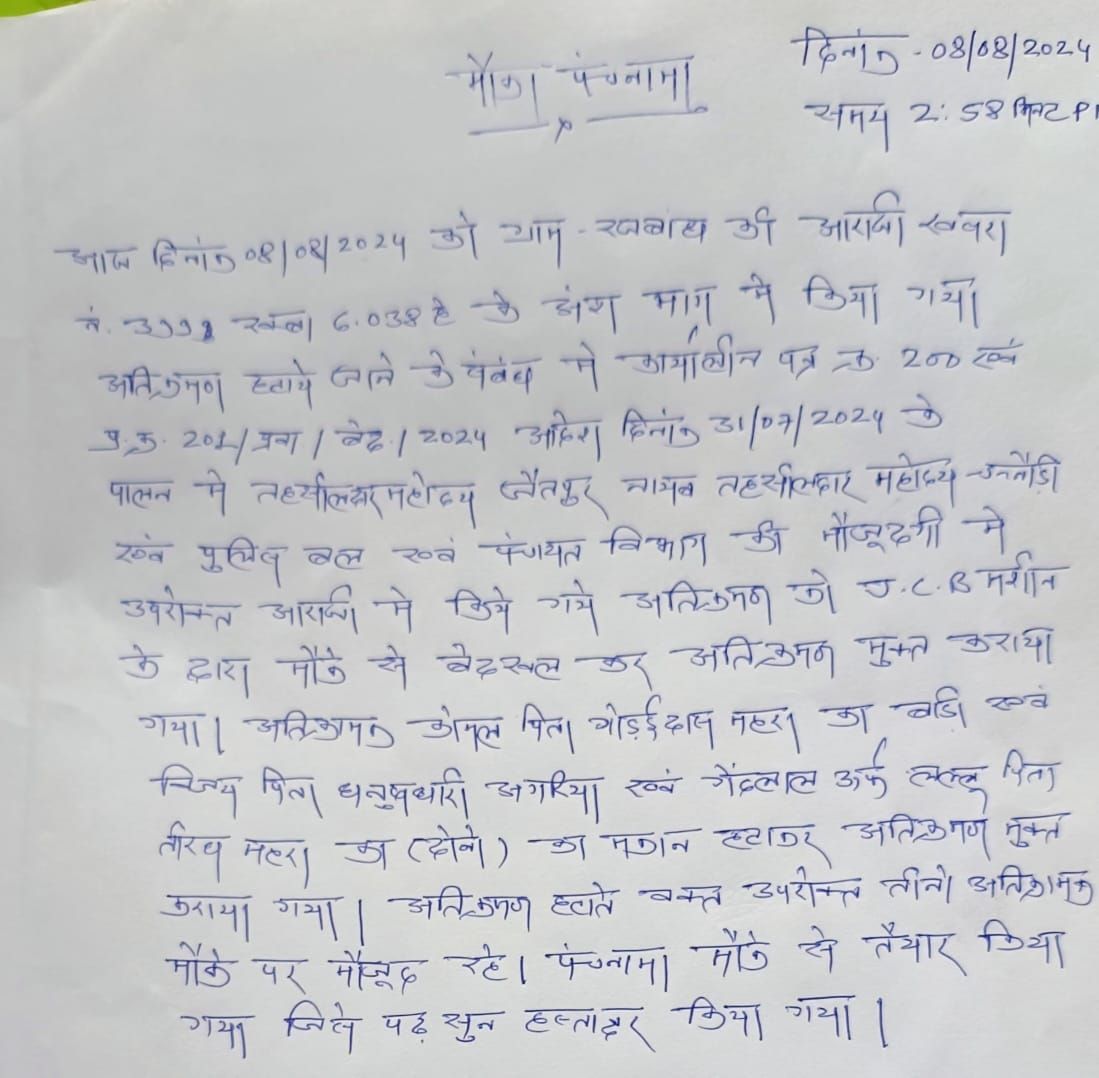 दिनांक - 08/08/2024
मौका पंचनामा
समय 2:58 मिनट P
आज दिनांक 08/08/2024 को ग्राम - की आराजी खसरा
नं. रकबा 6.038 हे के अंश भाग मे किया गया
अतिक्रमण हटाये जाने के संबंध मे पत्र क्र. 200 एवं
प्र.क्र. 201/ / बेद. / 2024 आदेश दिनांक 31/07/2024 के
पालन मे तहसीलदार महोदय जैतपुर नायब तहसीलदार महोदय
एवं पुलिस बल एवं पंचायत विभाग की मौजूदगी मे
उपरोक्त आराजी मे किये गये अतिक्रमण को J.C.B मशीन
के द्वारा मौके से बेदखल कर अतिक्रमण मुक्त कराया
गया। अतिक्रामक कोमल पिता महरा का बाडी एवं
पिता धनुषधारी अगरिया एवं गेंदलाल ऊर्फ लल्लू पिता
तीरथ महरा का (दोनो) का मकान हटाकर अतिक्रमण मुक्त
कराया गया। अतिक्रमण हटाते वक्त उपरोक्त तीनो अतिक्रामक
मौके पर मौजूद रहे। पंचनामा मौके से तैयार किया
गया जिसे पढ़ सुन हस्ताक्षर किया गया।